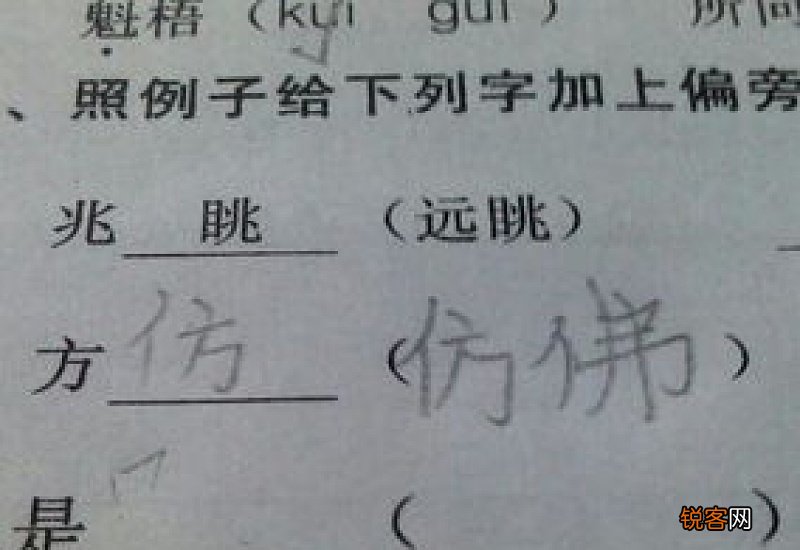 魁梧（kuí guī） 所向
、照例子给下列字加上偏旁
兆 眺 （远眺）
方 仿 （仿佛）
是 （ ）
锐客网